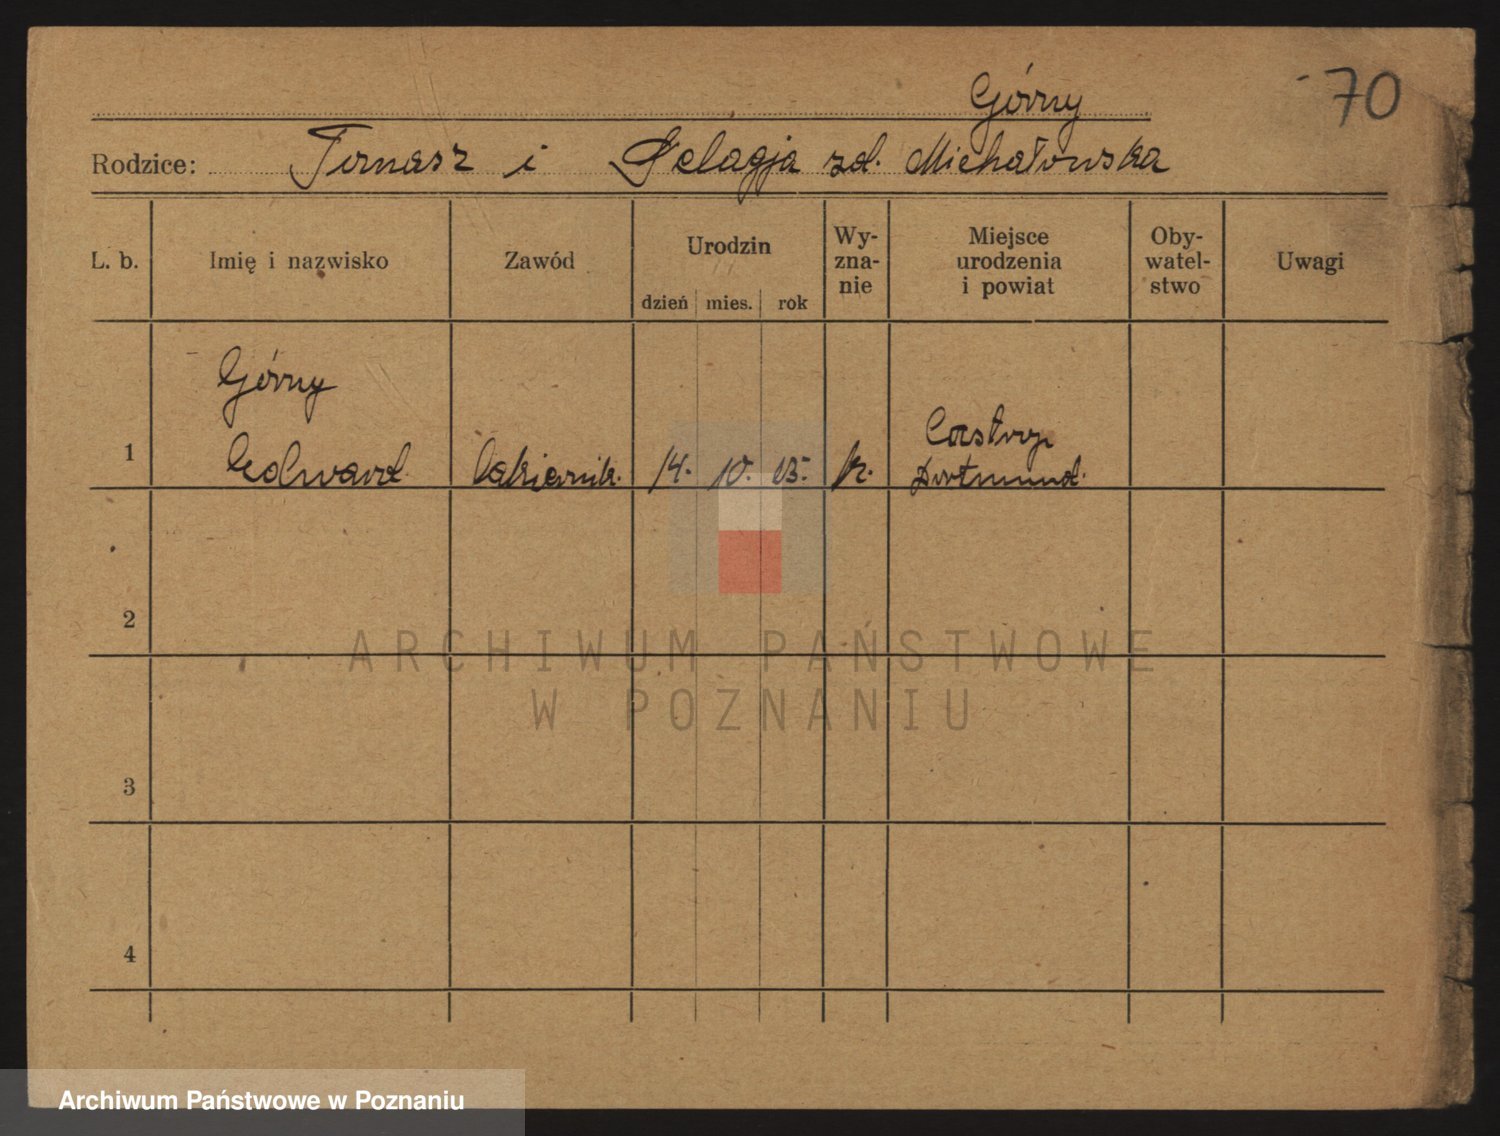 Górny
70
Rodzice: Tomasz i Pelagja zd. Michałowska
L. b. Imię i nazwisko Zawód Urodzin Wy-zna-nie Miejsce urodzenia i powiat Oby-watel-stwo Uwagi
dzień mies. rok
Górny
1 Edward Cukiernik. 14. 10. Castrop
Dortmund.
2
3
4
ARCHIWUM PAŃSTWOWE
W POZNANIU
Archiwum Państwowe w Poznaniu